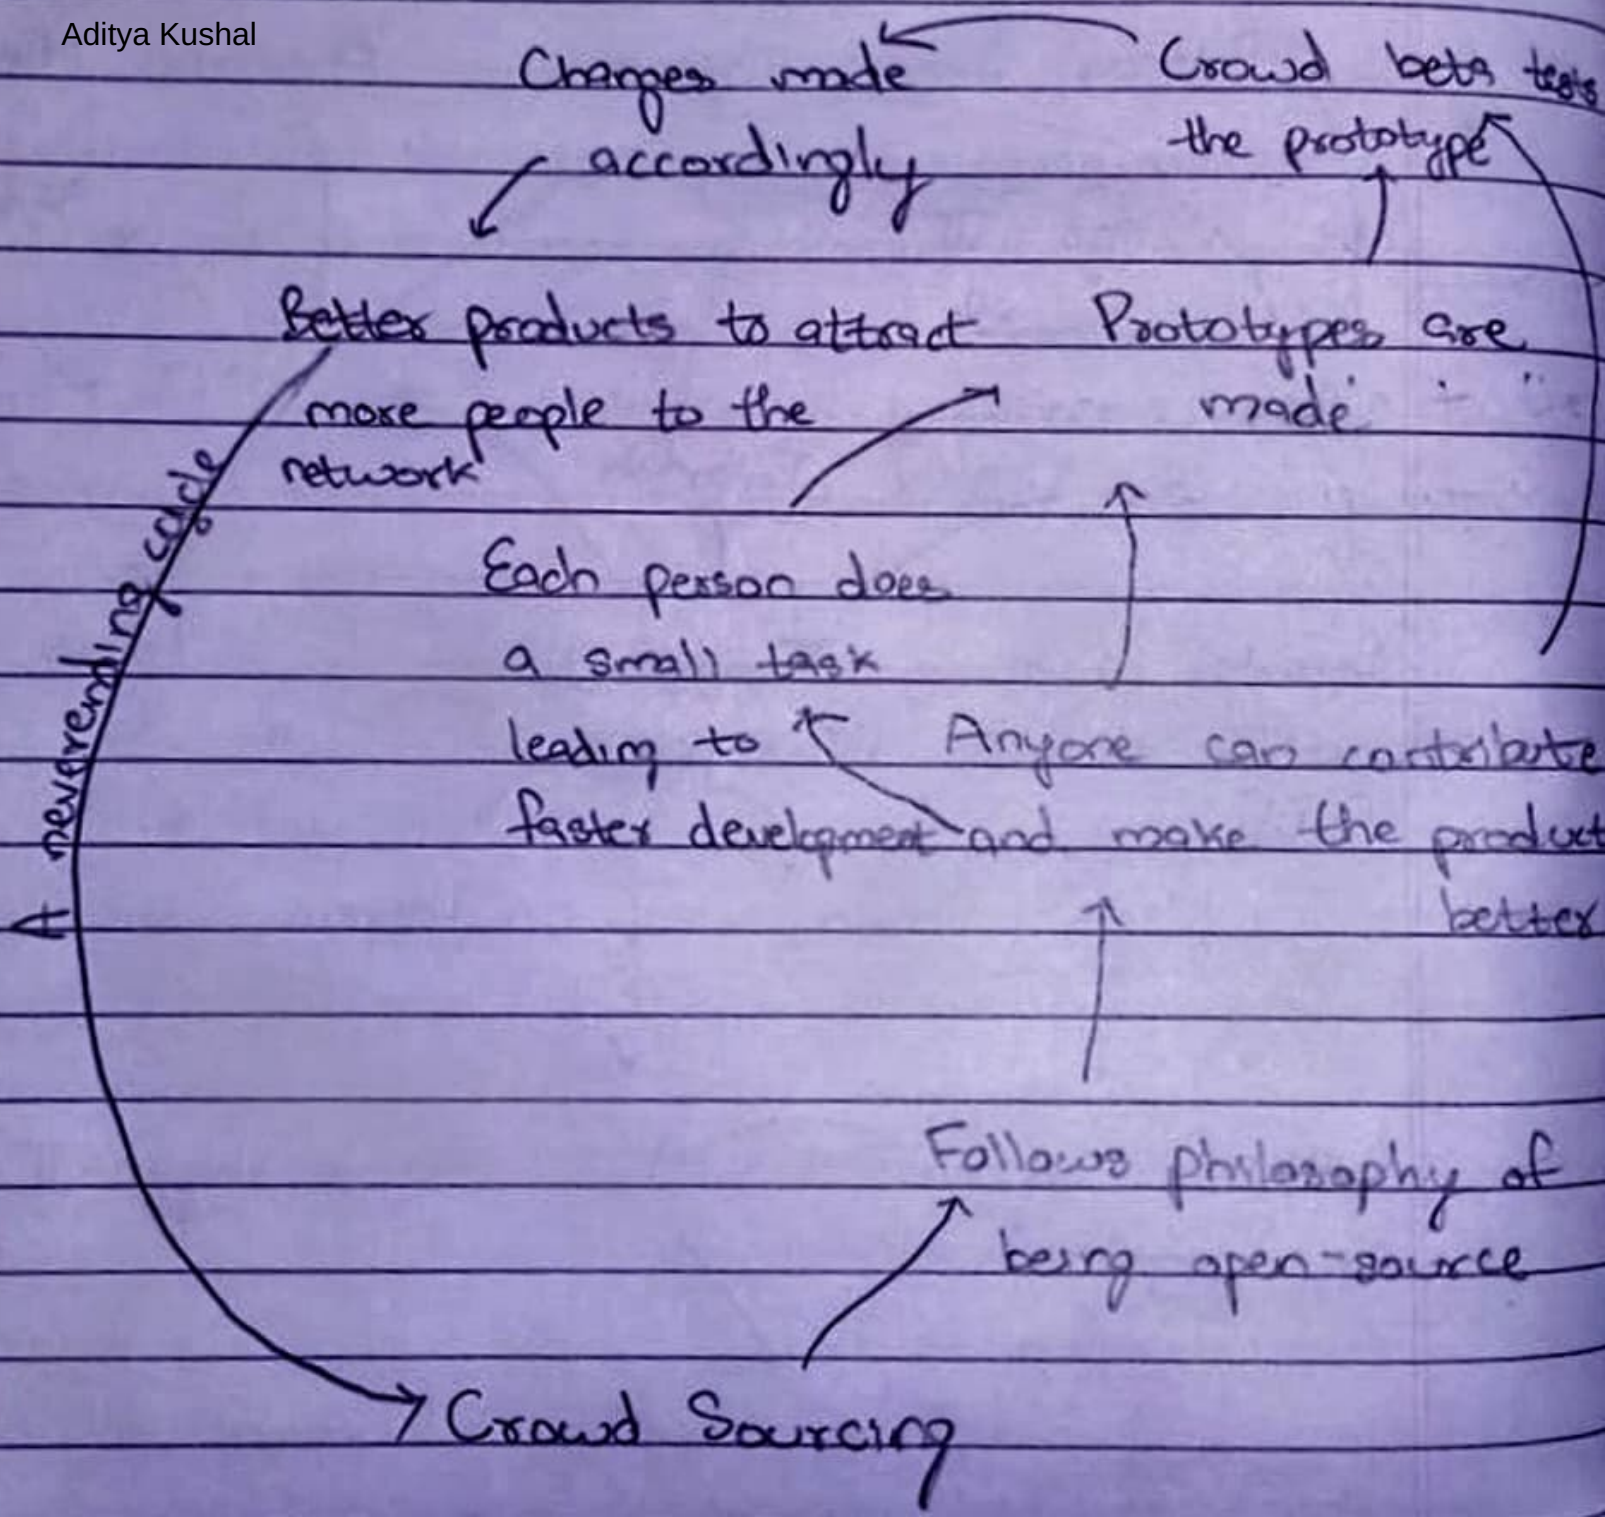 Aditya Kushal
Changes made
accordingly
Crowd beta tests
the prototype
Better products to attract
more people to the
network
Prototypes are
made
A neverending cycle
Each person does
a small task
leading to
faster development
Anyone can contribute
and make the product
better
Follows philosophy of
being open-source
Crowd Sourcing